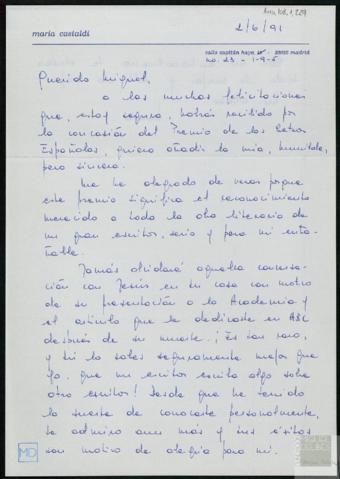 2/6/91
maria castaldi
calle capitán haya
madrid
no. 23 - 1-9-5
Querido Miguel,
a las muchas felicitaciones
que, estoy segura, habrás recibido por
la concesión del Premio de las Letras
Españolas, quiero añadir la mía, humilde,
pero sincera.
Me he alegrado de veras porque
este premio significa el reconocimiento
merecido a toda la obra literaria de
un gran escritor, serio y para mí entra-
ñable.
Jamás olvidaré aquella conversa-
ción con Jesús en tu casa con motivo
de su presentación a la Academia y
el artículo que le dedicaste en ABC
después de su muerte. ¡Es tan raro,
y tú lo sabes seguramente mejor que
yo, que un escritor escriba algo sobre
otro escritor! Desde que he tenido
la suerte de conocerte personalmente,
te admiro aún más y tus éxitos
son motivo de alegría para mí.
MD